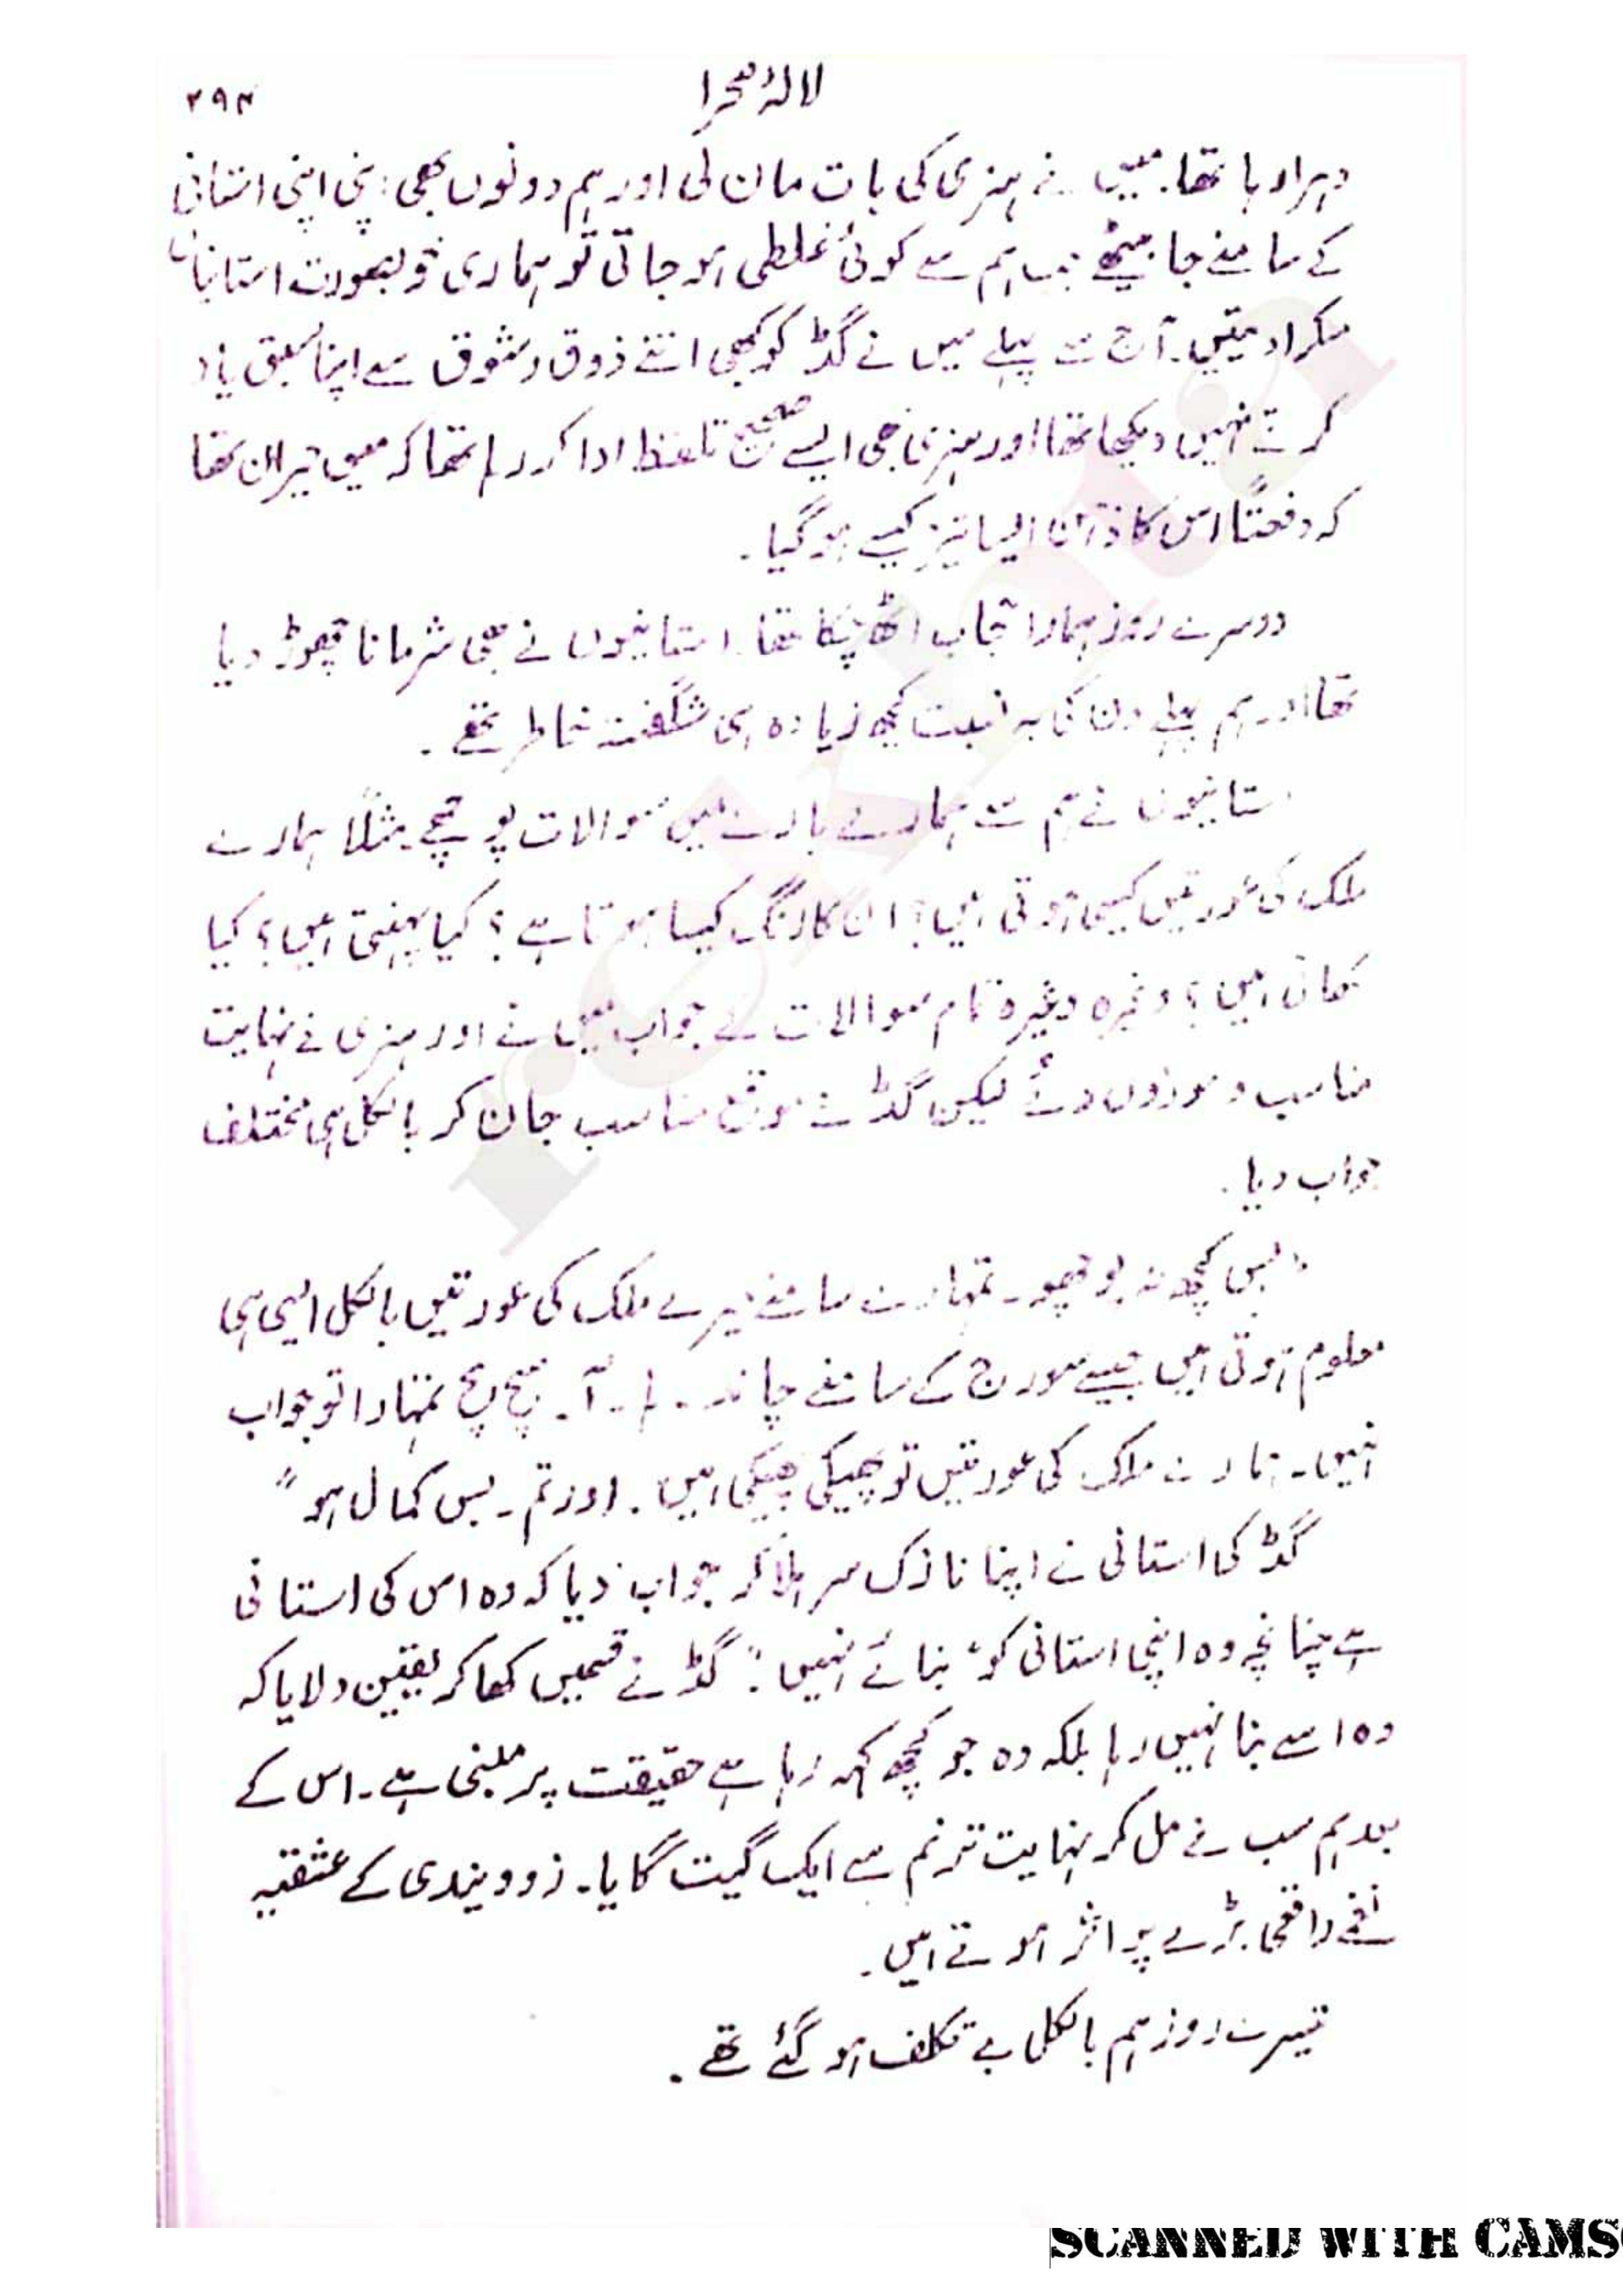 لالۂ صحرا
۲۹۳
دہرا رہا تھا۔ میں نے ہنری کی بات مان لی اور ہم دونوں بھی اپنی اپنی استانی
کے سامنے جا بیٹھے جب ہم سے کوئی غلطی ہو جاتی تو ہماری خوبصورت استانیاں
مسکرا دیتیں۔ آج سے پہلے میں نے گڈ کو کبھی اتنے ذوق و شوق سے اپنا سبق یاد
کرتے نہیں دیکھا تھا اور ہنری بھی ایسے صحیح تلفظ ادا کر رہا تھا کہ میں حیران تھا
کہ دفعتاً اس کا ذہن ایسا تیز کیسے ہو گیا۔
دوسرے روز ہمارا حجاب اٹھ چکا تھا۔ استانیوں نے بھی شرمانا چھوڑ دیا
تھا اور ہم پہلے دن کی بہ نسبت کچھ زیادہ ہی شگفتہ خاطر تھے۔
استانیوں نے ہم سے ہمارے بارے میں سوالات پوچھے۔ مثلاً ہمارے
ملک کی عورتیں کیسی ہوتی ہیں؟ ان کا رنگ کیسا ہوتا ہے؟ کیا پہنتی ہیں؟ کیا
کھاتی ہیں؟ وغیرہ وغیرہ تمام سوالات کے جواب میں نے اور ہنری نے نہایت
مناسب و موزوں دئے لیکن گڈ نے موقع مناسب جان کر بالکل ہی مختلف
جواب دیا۔
"بس کچھ نہ پوچھو۔ تمہارے سامنے میرے ملک کی عورتیں بالکل ایسی ہی
معلوم ہوتی ہیں جیسے سورج کے سامنے چاند۔ ہا۔ آ۔ سچ سچ تمہارا تو جواب
نہیں۔ ہمارے ملک کی عورتیں تو پھیکی پھیکی ہیں۔ اور تم۔ بس کمال ہو"
گڈ کی استانی نے اپنا نازک سر ہلا کر جواب دیا کہ وہ اس کی استانی
ہے چنانچہ وہ اپنی استانی کو "بنائے نہیں"۔ گڈ نے قسمیں کھا کر یقین دلایا کہ
وہ اسے بنا نہیں رہا بلکہ وہ جو کچھ کہہ رہا ہے حقیقت پر مبنی ہے۔ اس کے
بعد ہم سب نے مل کر نہایت ترنم سے ایک گیت گایا۔ زوویندی کے عشقیہ
نغمے واقعی بڑے پر اثر ہوتے ہیں۔
تیسرے روز ہم بالکل بے تکلف ہو گئے تھے۔
rekhta
SCANNED WITH CAMS